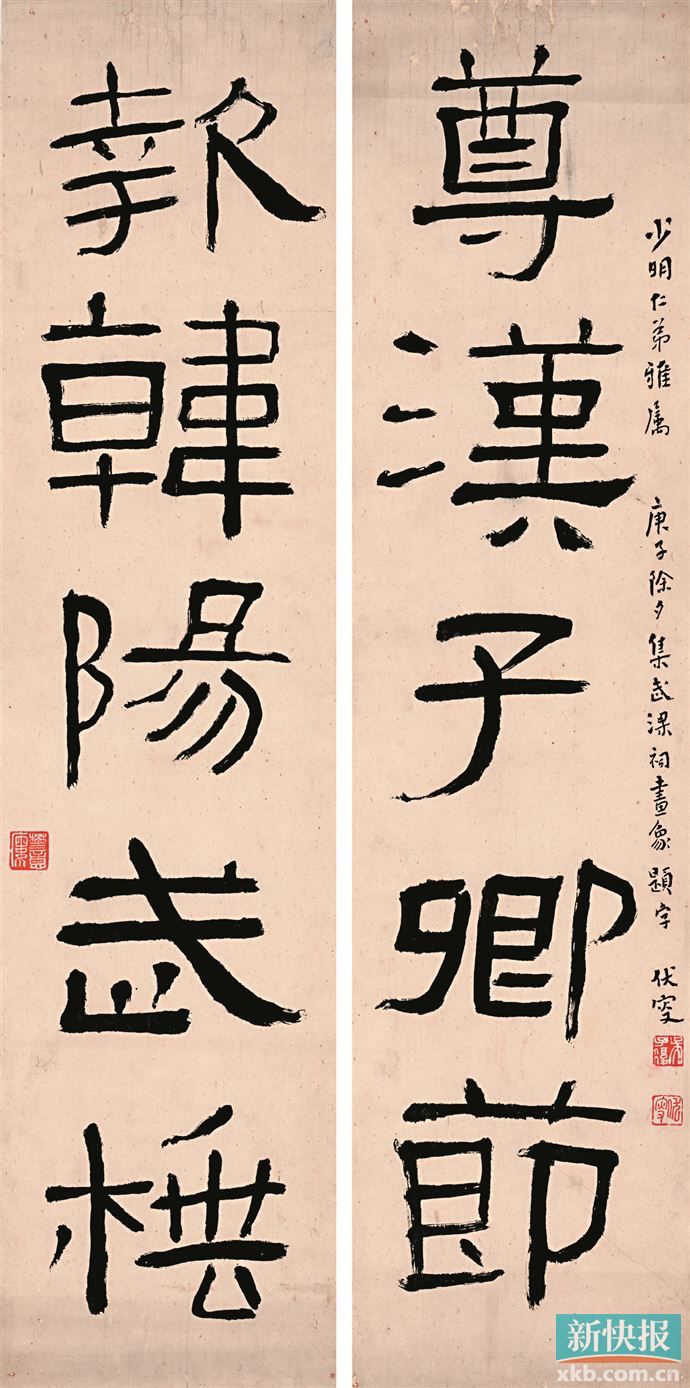 尊漢子卿節
少明仁弟雅屬 庚子除夕集武梁祠畫象題字 伏叟
報韓陽武棰
新快报
xkb.com.cn